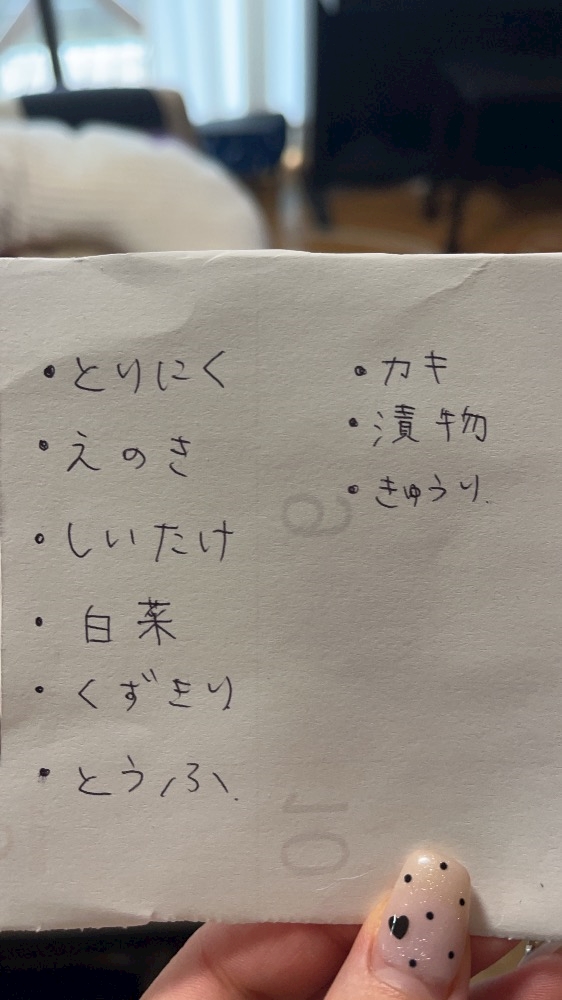 ・とりにく
・えのき
・しいたけ
・白菜
・くずきり
・とうふ
・カキ
・漬物
・きゅうり
9
10